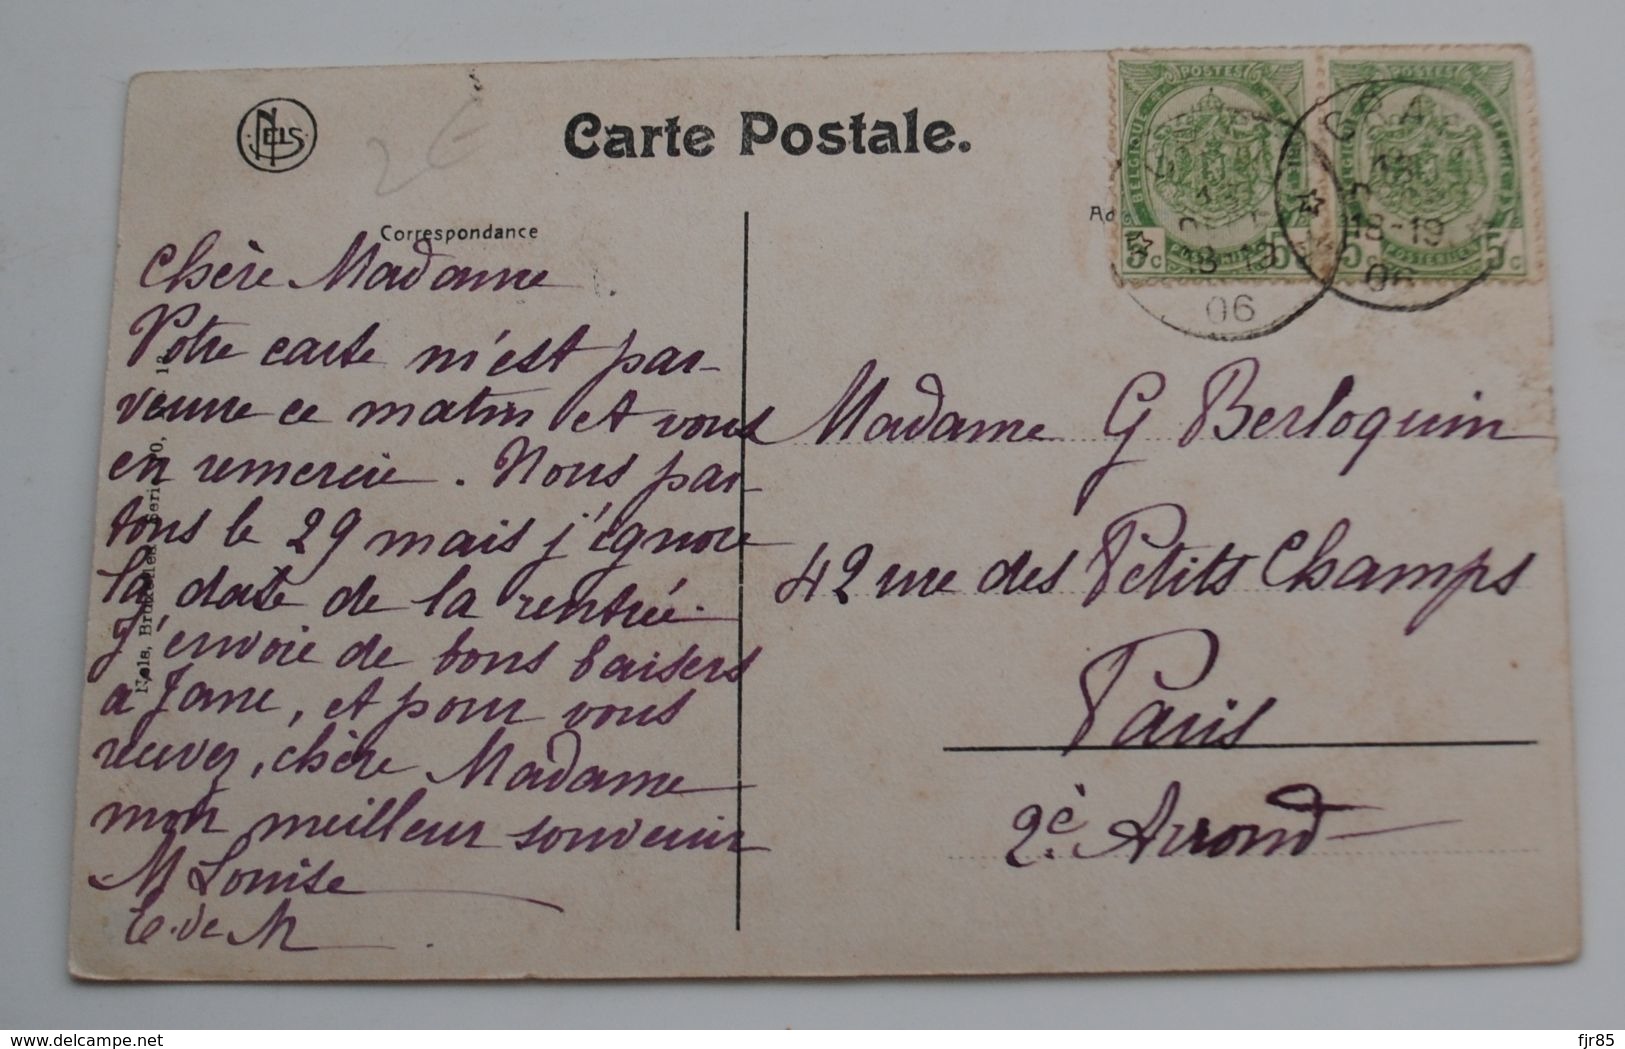 NELS
2€
Carte Postale.
Correspondance
BELGIQUE POSTES
5c 5c
5c 5c
18-19
06
18-19
06
Chère Madame
Votre carte m'est par-
venue ce matin et vous
en remercie. Nous par-
tons le 29 mais j'ignore
la date de la rentrée.
J'envoie de bons baisers
a Jane, et pour vous
recevez, chère Madame
mon meilleur souvenir
M Louise
de M
Nels, Bruxelles
Madame G Berloquin
42 rue des Petits Champs
Paris
2è Arrond
www.delcampe.net
fjr85